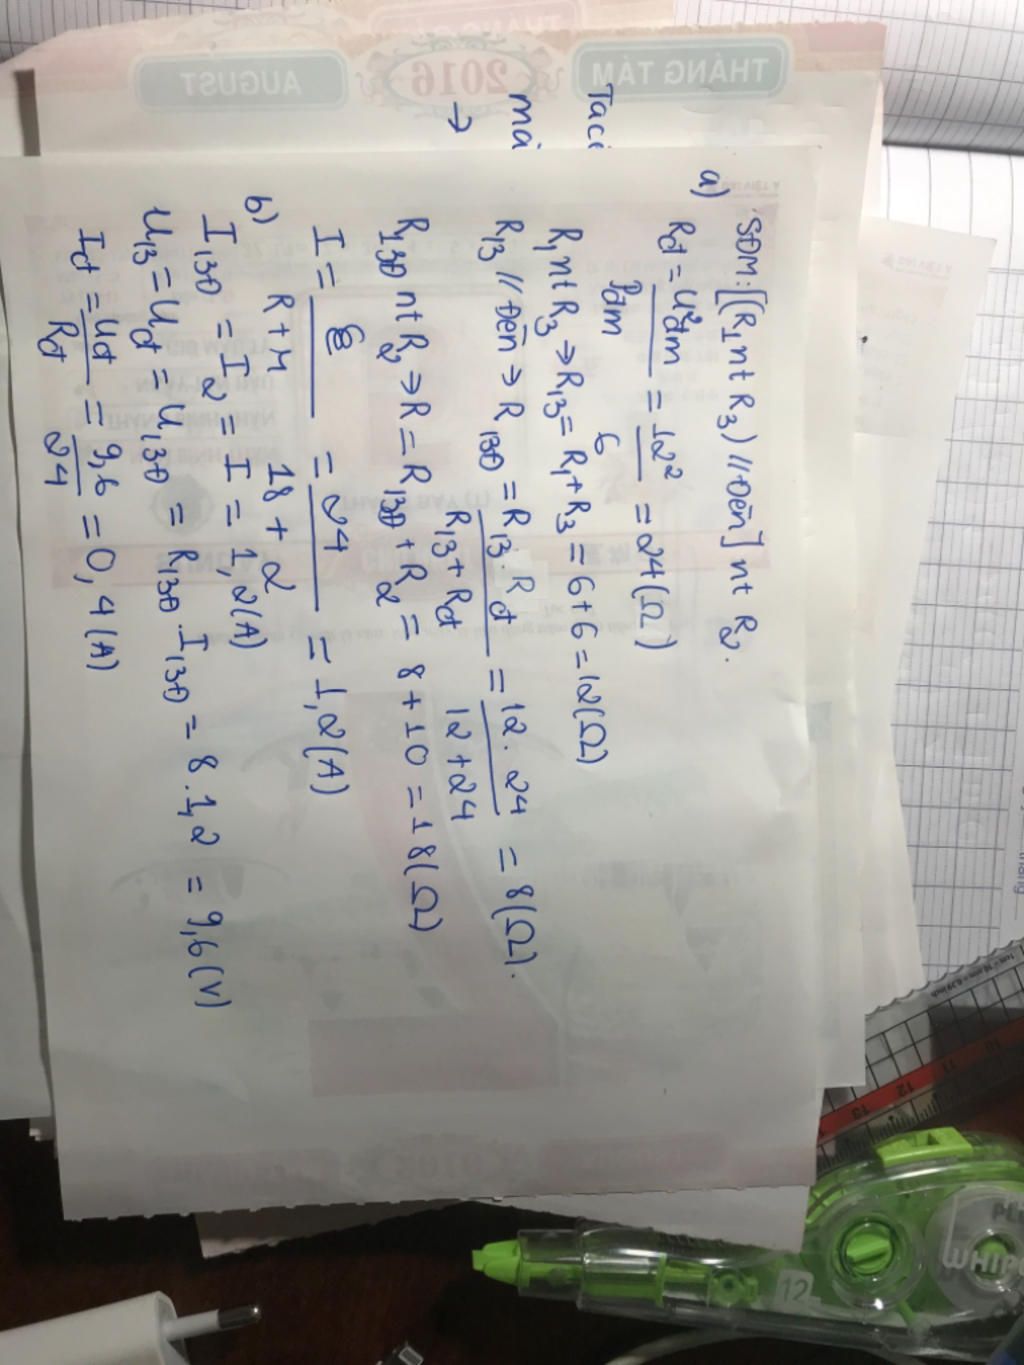 THÁNG TÁM 2016 AUGUST
Tacó
mà
→
a) SĐM: [(R₁ nt R₃) // Đèn] nt R₂.
Rđ = U²đm / Pđm = 12² / 6 = 24 (Ω)
R₁ nt R₃ → R₁₃ = R₁ + R₃ = 6 + 6 = 12 (Ω)
R₁₃ // Đèn → R₁₃Đ = R₁₃ . Rđ / R₁₃ + Rđ = 12 . 24 / 12 + 24 = 8 (Ω).
R₁₃Đ nt R₂ → R = R₁₃Đ + R₂ = 8 + 10 = 18 (Ω)
I = E / R + r = 24 / 18 + 2 = 1,2 (A)
b) I₁₃Đ = I₂ = I = 1,2 (A)
U₁₃ = Uđ = U₁₃Đ = R₁₃Đ . I₁₃Đ = 8 . 1,2 = 9,6 (V)
Iđ = Uđ / Rđ = 9,6 / 24 = 0,4 (A)
11 12 13
12
WHIP